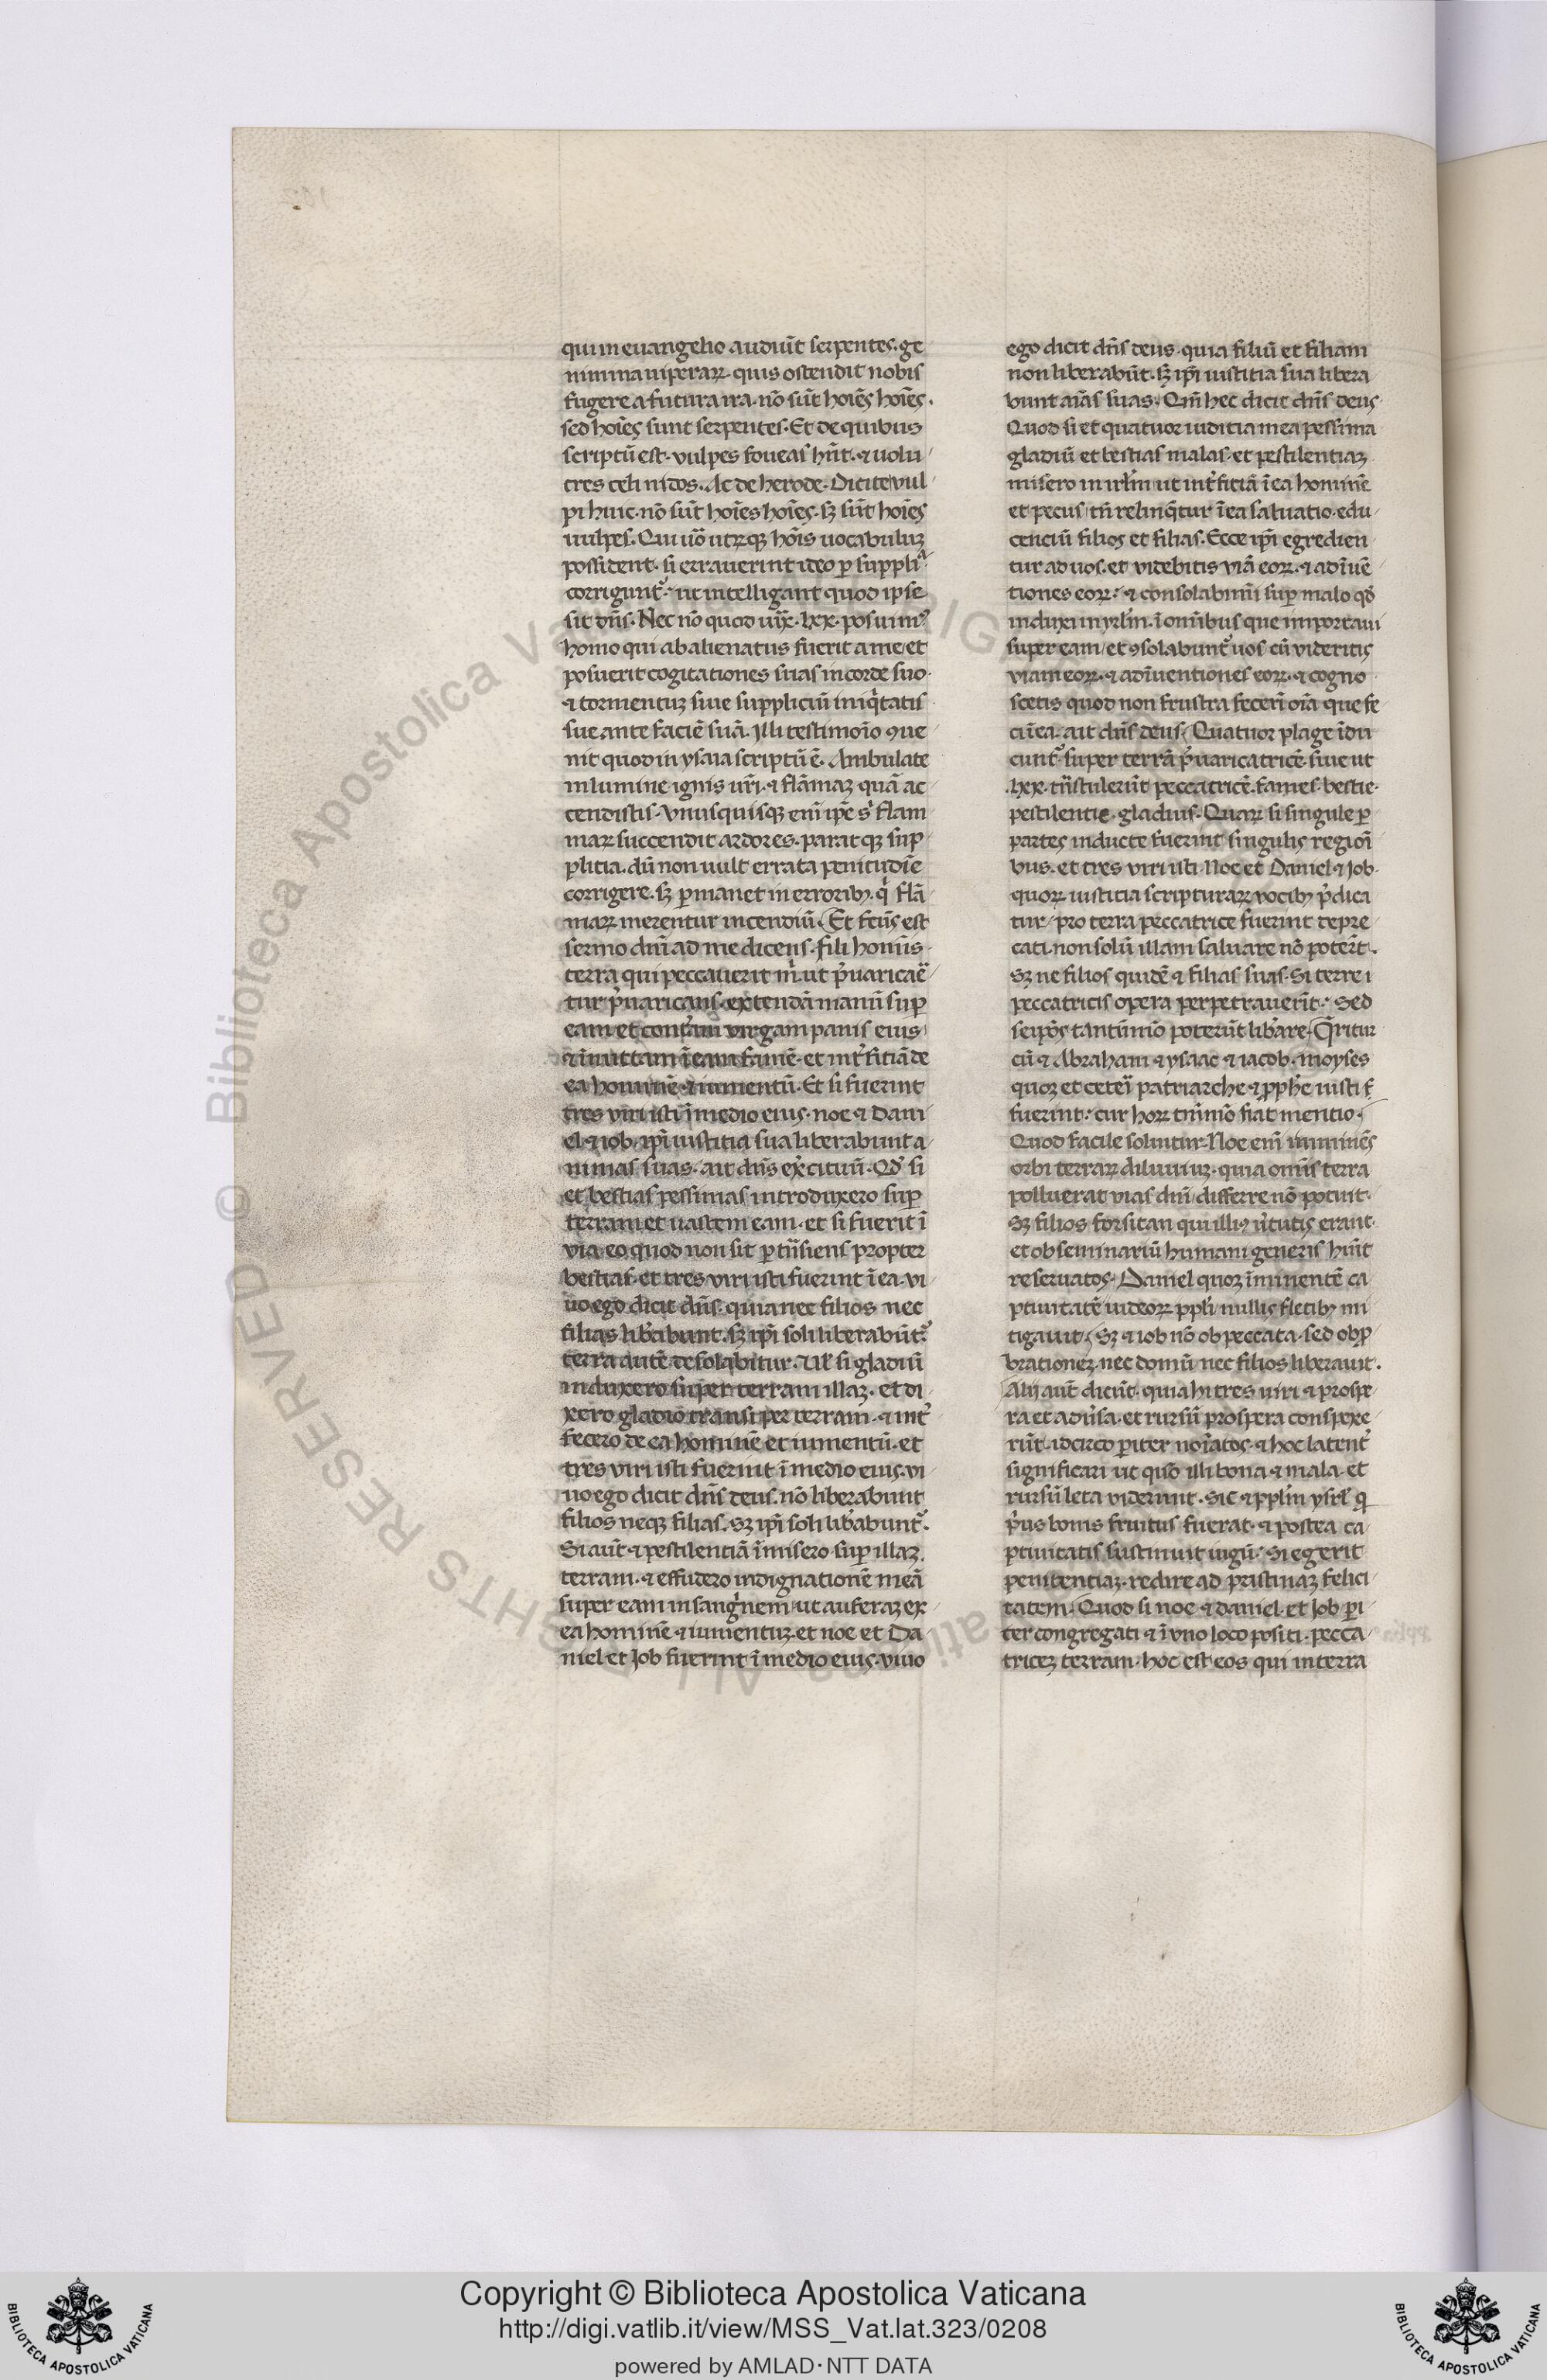 qui in euangelio audiūt serpentes. ge
nimina uiperaꝝ. quis ostendit nobis
fugere a futura ira. nō sūt hoīes hoīes.
sed hoīes sunt serpentes. Et de quibus
scriptū est. vulpes foueas hn̄t. ⁊ uolu
cres celi nidos. Ac de herode. Dicite vul
pi huic. nō sūt hoīes hoīes. sꝫ sūt hoīes
uulpes. Qui uō utrūqꝫ hoīs uocabuluꝫ
possident. si errauerint ideo ꝑ suppliᵃ
corrigunt᷑. ut intelligant quod ipse
sit dn̄s. Nec nō quod iux̄. lxx. posuimꝰ
homo qui abalienatus fuerit a me/ et
posuerit cogitationes suas in corde suo.
⁊ tormentuꝫ siue suppliciū iniqͥtatis
sue ante faciē suā. Illi testimoīo ꝯue
nit quod in ysaia scriptū ē. Ambulate
in lumine ignis ur̄i. ⁊ flāmaꝫ quā ac
cendistis. Vnusquisqꝫ enī ip̄e sͥ flam
maꝝ succendit ardores. parat qꝫ sup
plicia. dū non uult errata penitudīe
corrigere. sꝫ ꝑmanet in erroribꝫ. qͥ flā
maꝝ merentur incendiū. Et fc̄us est
sermo dn̄i ad me dicens. fili homīs.
terra qui peccauerit mͥ. ut p̄uaricae
tur p̄uaricans. extendā manū suꝑ
eam et conterā virgam panis eius
⁊ īmittam ī eam famē. et int᷑ficiā de
ea hominē ⁊ iumentū. Et si fuerint
tres viri isti ī medio eius. noe ⁊ Dani
el. ⁊ iob. ip̄i iustitia sua liberabunt a
nimas suas. ait dn̄s ex̄cituū. Qđ si
et bestias pessimas introduxero suꝑ
terram et uastem eam. et si fuerit ī
via eo quod non sit ꝑtn̄siens propter
bestias. et tres viri isti fuerint ī ea. vi
uo ego dicit dn̄s. quia nec filios nec
filias lib̄abunt. sꝫ ip̄i soli liberabūt᷑.
terra autē desolabitur. Ul̄ si gladiū
induxero super terram illaꝫ. et di
xero gladio transi per terram. ⁊ int᷑
fecero de ea hominē et iumentū. et
tres viri isti fuerint ī medio eius. vi
uo ego dicit dn̄s deus. nō liberabunt
filios neqꝫ filias. sꝫ ip̄i soli lib̄abunt᷑.
Si aut̄ ⁊ pestilentiā īmisero suꝑ illaꝫ
terram. ⁊ effudero indignationē meā
super eam in sangͥnem/ ut auferaꝫ ex
ea hominē ⁊ iumentuꝫ. et noe et Da
niel et Iob fuerint ī medio eius. viuo
ego dicit dn̄s deus. quia filiū et filiam
non liberabūt. sꝫ ip̄i iustitia sua libera
bunt aīas suas. Qm̄ hec dicit dn̄s deus.
Quod si et quatuor iuditia mea pessima
gladiū et bestias malas. et pestilentiaꝫ
misero in irl̄m ut int᷑ficiā ī ea hominē
et pecus/ tn̄ relinq̄tur ī ea saluatio. edu
cenciū filios et filias. Ecce ip̄i egredien
tur ad uos. et videbitis viā eoꝝ. ⁊ adīuē
tiones eoꝝ. ⁊ consolabimī suꝑ malo qđ
induxi in yrl̄m. ī omībus que importaui
super eam/ et ꝯsolabunt᷑ uos cū videritis
viam eoꝝ. ⁊ adīuentiones eoꝝ. ⁊ cogno
scetis quod non frustra fecerī oīa que fe
ci ī ea. ait dn̄s deus. Quatuor plage īdu
cunt᷑. super terrā p̄uaricatricē. siue ut
.lxx. tn̄stulerūt peccatricē. fames. bestie.
pestilentie. gladius. Quaꝝ si singule ꝑ
partes inducte fuerint singulis regioī
bus. et tres viri isti. Noe et Daniel ⁊ Iob.
quoꝝ iustitia scripturaꝝ vocibꝫ p̄dica
tur/ pro terra peccatrice fuerint depre
cati. non solū illam saluare nō poterūt.
Sꝫ ne filios quidē ⁊ filias suas. Si terre ī
peccatricis opera perpetrauerīt. Sed
seip̄os tantūmō poterūt lib̄are. Qͣritur
cū ⁊ Abraham ⁊ ysaac ⁊ iacob. moyses
quoꝫ et ceteī patriarche ⁊ ꝓph̄e iusti
fuerint. cur hoꝝ tm̄mō fiat mentio.
Quod facile soluitur. Noe enī iminēs
orbi terraꝝ diluuiuꝫ. quia omīs terra
polluerat vias dn̄i/ differre nō potuit.
Sꝫ filios forsitan qui illiꝰ v̄tutis erant.
et ob seminariū humani generis hūit
reseruatos. Daniel quoꝫ īminentē ca
ptiuitatē iudeoꝝ ppl̄i nullis fletibꝫ mi
tigauit. Sꝫ ⁊ iob nō ob peccata. sed ob ꝓ
bationeꝫ. nec domū nec filios liberauit.
Alij aut̄ dicūt. quia hi tres uiri ⁊ prospe
ra et adūsa. et rursū prospera conspexe
rūt. idcirco ꝑiter noīatos. ⁊ hoc latent᷑
significari ut quō illi bona ⁊ mala. et
rursū leta viderunt. Sic ⁊ ppl̄m ysrl̄ qͥ
pͥus bonis fruitus fuerat. ⁊ postea ca
ptiuitatis sustinuit iugū. Si egerit
penitentiaꝫ. redire ad pristinaꝫ felici
tatem. Quod si noe ⁊ daniel. et Iob ꝑi
ter congregati ⁊ ī vno loco positi. pecca
triceꝫ terram. hoc est eos qui in terra
© Biblioteca Apostolica Vaticana ALL RIGHTS RESERVED
Copyright © Biblioteca Apostolica Vaticana
http://digi.vatlib.it/view/MSS_Vat.lat.323/0208
powered by AMLAD·NTT DATA
BIBLIOTECA APOSTOLICA VATICANA
BIBLIOTECA APOSTOLICA VATICANA